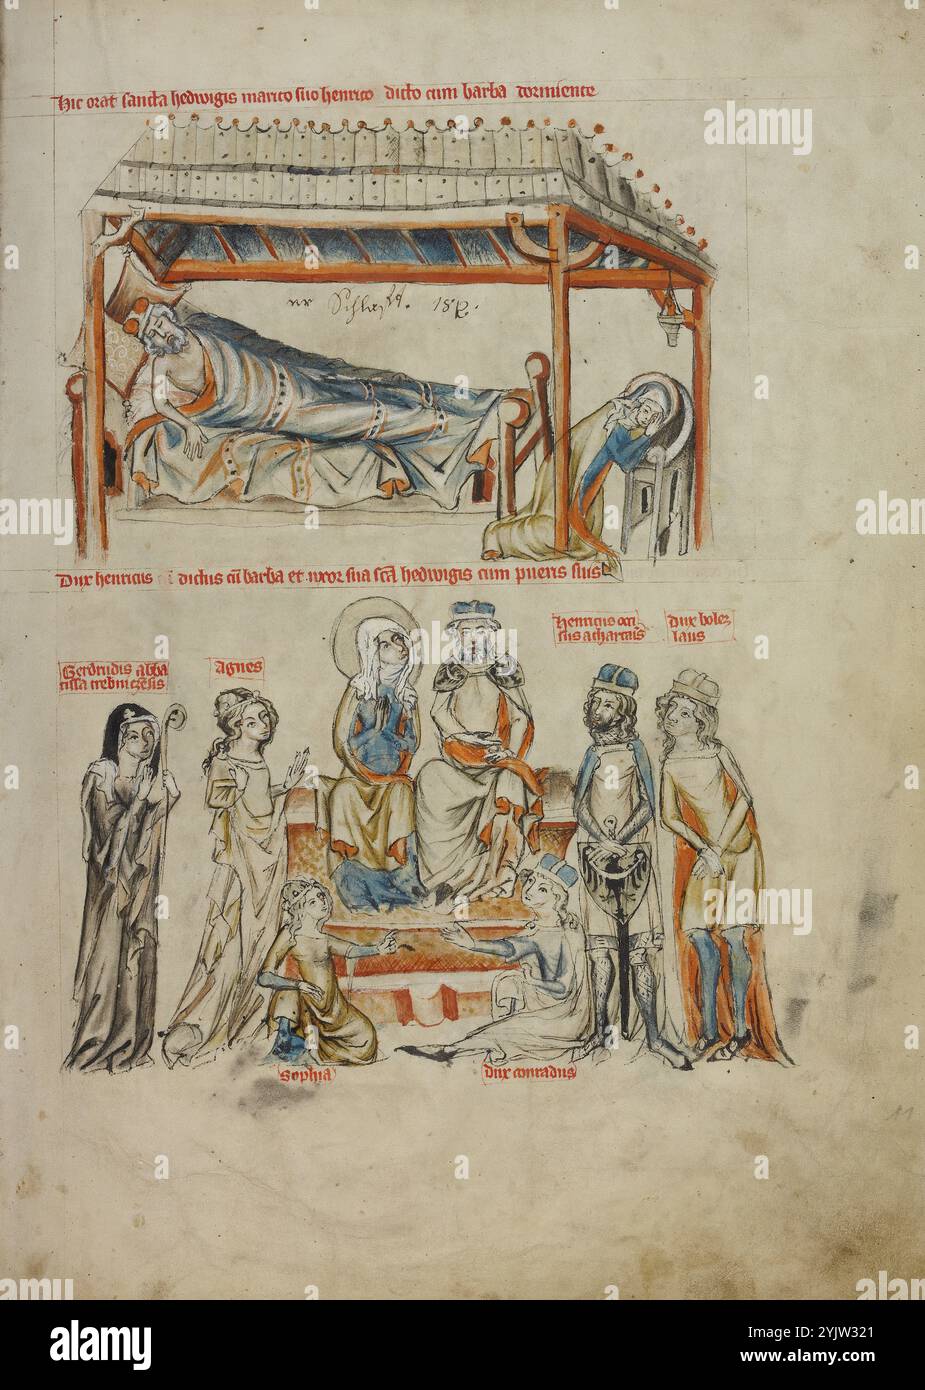 Hic orat sancta hedwigis marito suo henrico dicto cum barba dormiente
Dux henricus dictus cū barba et uxor sua scā hedwigis cum pueris suis
Gerdrudis abba
tissa trebniczēsis
Agnes
Henricus occi
sus a thartaris
Dux bolez
laus
Sophia
Dux conradus
11
alamy
Image ID: 2YJW321
www.alamy.com